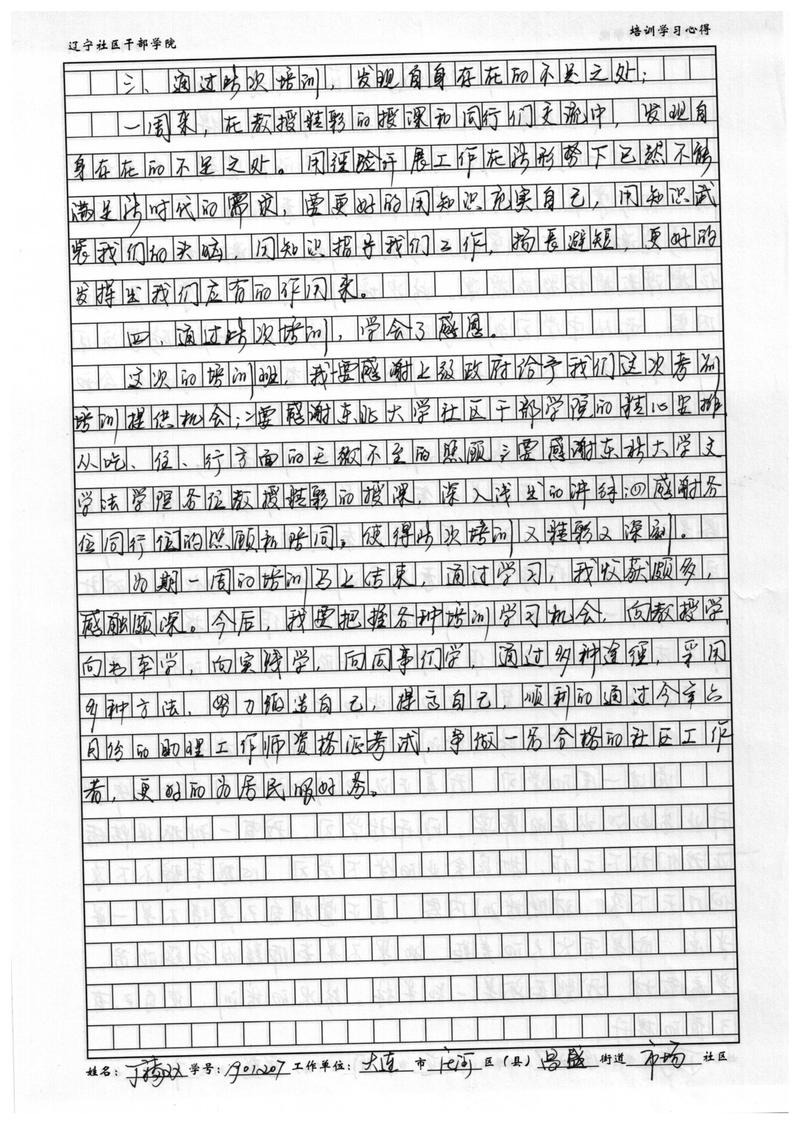 辽宁社区干部学院 培训学习心得
三、通过此次培训，发现自身存在的不足之处；
一周来，在教授精彩的授课和同行们交流中，发现自
身存在的不足之处。用经验开展工作在新形势下已然不能
满足新时代的需求，需更好的用知识充实自己，用知识武
装我们的头脑，用知识指导我们工作，扬长避短，更好的
发挥出我们应有的作用来。
四、通过此次培训，学会了感恩。
这次的培训班，我一要感谢上级政府给予我们这次考前
培训提供机会；二要感谢东北大学社区干部学院的精心安排
从吃、住、行方面的无微不至的照顾；三要感谢东北大学文
学法学院各位教授精彩的授课，深入浅出的讲解；四感谢各
位同行们的照顾和陪同，使得此次培训又精彩又深刻。
为期一周的培训马上结束，通过学习，我收获颇多，
感触颇深。今后，我要把握各种培训学习机会，向教授学，
向书本学，向实践学，向同事们学，通过多种途径，采用
多种方法，努力锻造自己，提高自己，顺利的通过今年六
月份的助理工作师资格证考试，争做一名合格的社区工作
者，更好的为居民服好务。
姓名：丁 学号：1901207 工作单位：大连 市 庄河 区（县） 昌盛 街道 市场 社区